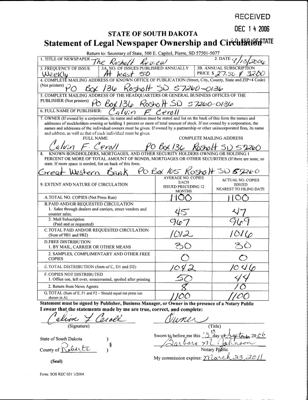 RECEIVED
DEC 14 2006
STATE OF SOUTH DAKOTA
Statement of Legal Newspaper Ownership and Circulation
Return to: Secretary of State, 500 E. Capitol, Pierre, SD 57501-5077
1. TITLE OF NEWSPAPER The Rosholt Review 2. DATE
3. FREQUENCY OF ISSUE Weekly 3A. NO. OF ISSUES PUBLISHED ANNUALLY At least 50 3B. ANNUAL SUBSCRIPTION PRICE $
4. COMPLETE MAILING ADDRESS OF KNOWN OFFICE OF PUBLICATION (Street, City, County, State and ZIP+4 Code)
(Not printers) PO Box 136 Rosholt SD 57260-0136
5. COMPLETE MAILING ADDRESS OF THE HEADQUARTERS OR GENERAL BUSINESS OFFICES OF THE
PUBLISHER (Not printers) PO Box 136 Rosholt SD 57260-0136
6. FULL NAME OF PUBLISHER: Calvin F Ceroll
7. OWNER (If owned by a corporation, its name and address must be stated and also the
addresses of stockholders owning or holding 1 percent or more of total amount of stock. If not owned by a corporation, the
names and addresses of the individual owners must be given. If owned by a partnership or other unincorporated firm, its name
and address, as well as that of each individual must be given.
FULL NAME COMPLETE MAILING ADDRESS
Calvin F Ceroll PO Box 136 Rosholt SD 57260
8. KNOWN BONDHOLDERS, MORTGAGEES, AND OTHER SECURITY HOLDERS OWNING OR HOLDING 1
PERCENT OR MORE OF TOTAL AMOUNT OF BONDS, MORTGAGES OR OTHER SECURITIES (If there are none, so
state. If more space is needed, list on back of this form.)
Great Western Bank PO Box 105 Rosholt SD 57260
9. EXTENT AND NATURE OF CIRCULATION
AVERAGE NO. COPIES EACH ISSUED PRECEDING 12 MONTHS
ACTUAL NO. COPIES ISSUED NEAREST TO FILING DATE
A. TOTAL NO. COPIES (Net Press Run) 1100 1100
B. PAID AND/OR REQUESTED CIRCULATION
1. Sales through dealers and carriers, street vendors and counter sales. 45 47
2. Mail Subscription (Paid and or requested) 967 969
C. TOTAL PAID AND/OR REQUESTED CIRCULATION (Sum of 9B1 and 9B2) 1012 1016
D. FREE DISTRIBUTION
1. BY MAIL, CARRIER OR OTHER MEANS 30 30
2. SAMPLES, COMPLIMENTARY AND OTHER FREE COPIES 0 0
E. TOTAL DISTRIBUTION (Sum of C, D1 and D2) 1042 1046
F. COPIES NOT DISTRIBUTED
1. Office use, left over, unaccounted, spoiled after printing 50 44
2. Return from News Agents 8 10
G. TOTAL (Sum of E, F1 and F2 - Should equal net press run shown in A) 1100 1100
Statement must be signed by Publisher, Business Manager, or Owner in the presence of a Notary Public
I swear that the statements made by me are true, correct, and complete:
Calvin F Ceroll Owner
(Signature) (Title)
State of South Dakota )
County of Roberts )
(Seal)
Notary Public
My commission expires: March 23, 2011